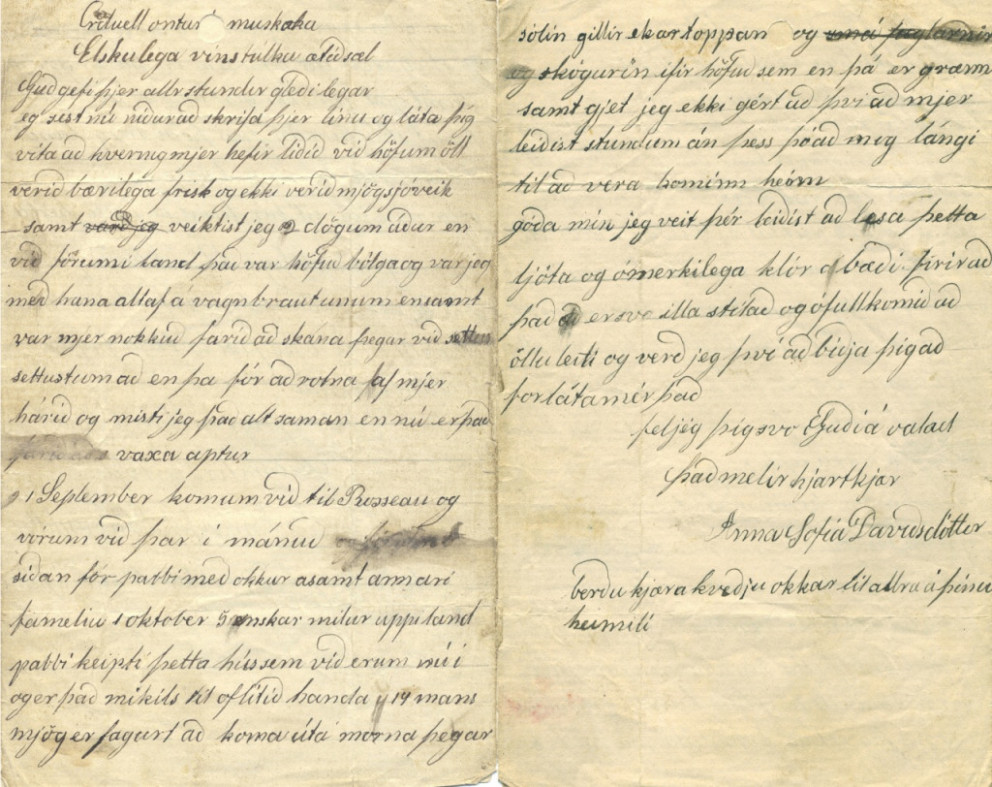 Crituell ontur muskoka
Elskulega vinstulka ætidsæl
Gud gefi þjer allr stundir gledilegar
eg sest nú nidur ad skrifa þjer línu og láta þig
vita ad hvernig mjer hefir lidid vid höfum öll
verid bærilega frisk og ekki verid mjög sjóveik
samt vard jeg veiktist jeg 2 dögum ádur en
vid fórum í land þau var höfud bólga og var jeg
med hana altaf á vagnbrautunum en samt
var mjer nokkud farid ad skána þegar vid settum
settustum ad en þa fór ad rotna af mjer
hárid og misti jeg þad alt saman en nú er þad
farid ad vaxa aptur
21 September komum vid til Rosseau og
vórum vid þar í mánud
sídan fór pabbi med okkur asamt annari
fameliu 1 oktober 5 enskar milur upp i land
pabbi keipti þetta hús sem vid erum nú í
og er þad mikils til of litid handa 14 mans
mjög er fagurt ad koma út á morna þegar
sólin gillir ekartoppan og smá fuglarnir
og skógurin ifir höfud sem en þá er grænn
samt gjet jeg ekki gért ad því ad mjer
leidist stundum án þess þó ad mig lángi
til ad vera kominn heim
góda mín jeg veit þér leidist ad lesa þetta
ljóta og ómerkilega klór bædi firir ad
þad er svo illa stilad og ófullkomid ad
öllu leiti og verd jeg því ad bidja þig ad
forláta mér þad
fel jeg þig svo Gudi á valdi
Þad melir hjartkjær
Anna Sofía Davidsdótter
berdu kjæra kvedju okkar til allra á þinu
heimili